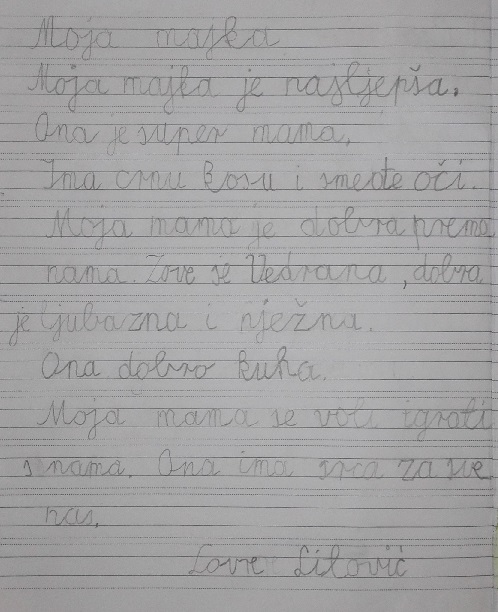 Moja majka
Moja majka je najljepša.
Ona je super mama.
Ima crnu kosu i smeđe oči.
Moja mama je dobra prema
nama. Zove se Vedrana, dobra
je ljubazna i nježna.
Ona dobro kuha.
Moja mama se voli igrati
s nama. Ona ima srca za sve
nas.
Lovre Lilović